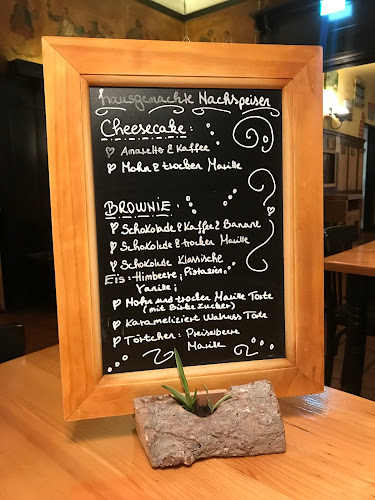 hausgemachte Nachspeisen
Cheesecake:
Amaretto & Kaffee
Mohn & trocken Marille
BROWNIE:
Schokolade & Kaffee & Banane
Schokolade & trocken Marille
Schokolade Klassische
Eis: Himbeere, Pistazien,
Vanille;
Mohn und trocken Marille Torte
(mit Birkezucker)
Karameliziert Walnuss Torte
Törtchen: Preiselbeere
Marille